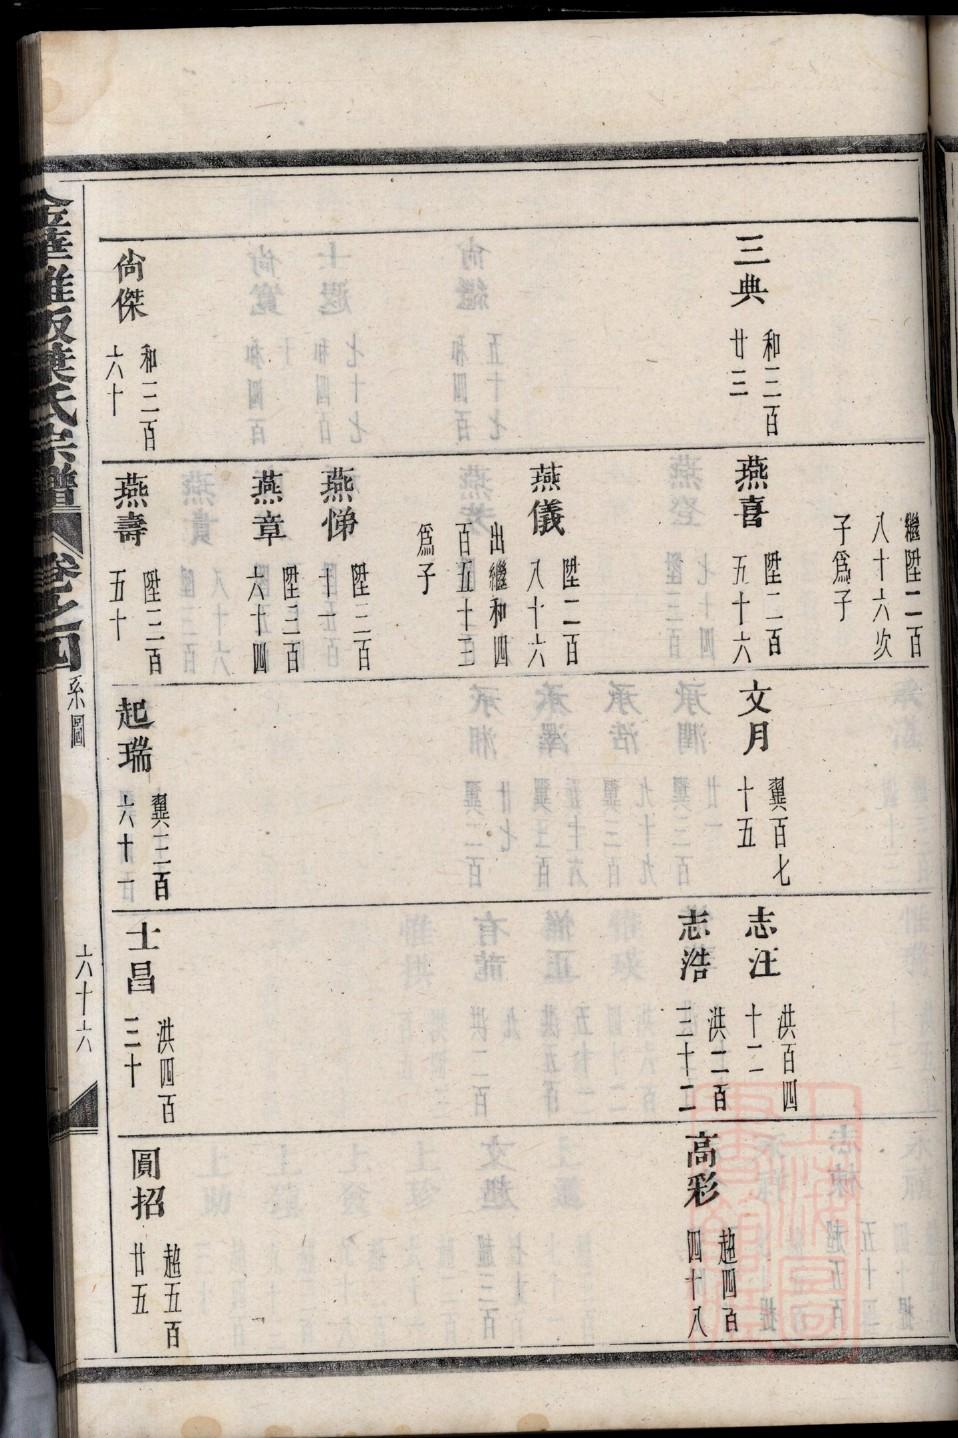 三典
和三百
廿三
尙傑
和三百
六十
繼陞二百
八十六次
子爲子
燕喜
陞二百
五十六
燕儀
陞二百
八十六
出繼和四
百五十三
爲子
燕悌
陞三百
十一
燕章
陞三百
六十四
燕壽
陞三百
五十
文月
翼百七
十五
起瑞
翼三百
六十一
志汪
洪百四
十二
志浩
洪二百
三十二
士昌
洪四百
三十
高彩
趙四百
四十八
圓招
趙五百
廿五
金華雅畈葉氏宗譜
卷之四
系圖
六十六